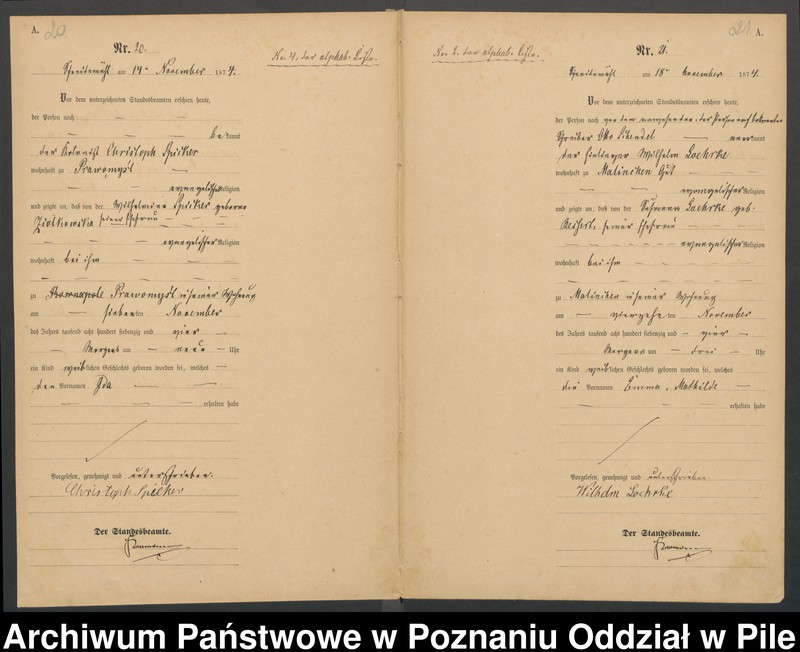 A.
20
Nr. 20.
am 14ten November 1874.
Vor dem unterzeichneten Standesbeamten erschien heute,
der Person nach
bekannt
der Kolonist Christoph Spicker
wohnhaft zu
evangelischer Religion
und zeigte an, daß von der Wilhelmine Spicker geborne
seiner Ehefrau
evangelischer Religion
wohnhaft bei ihm
zu in seiner Wohnung
am siebenten November
des Jahres tausend acht hundert siebenzig und vier
Morgens um neun Uhr
ein Kind weiblichen Geschlechts geboren worden sei, welches
den Vornamen Ida
erhalten habe
Vorgelesen, genehmigt und unterschrieben.
Christoph Spicker
Der Standesbeamte.
No. 4. der alphab. Liste.
No. 2. der alphab. Liste.
21
A.
Nr. 21.
am 18ten November 1874.
Vor dem unterzeichneten Standesbeamten erschien heute,
der Person nach
Schreiber Otto nannt
der Wilhelm Lochrke
wohnhaft zu Gut
evangelischer Religion
und zeigte an, daß von der Lochrke geb.
seiner Ehefrau
evangelischer Religion
wohnhaft bei ihm
zu in seiner Wohnung
am November
des Jahres tausend acht hundert siebenzig und vier
Morgens um drei Uhr
ein Kind weiblichen Geschlechts geboren worden sei, welches
die Vornamen Emma, Mathilde
erhalten habe
Vorgelesen, genehmigt und unterschrieben
Wilhelm Lochrke
Der Standesbeamte.
Archiwum Państwowe w Poznaniu Oddział w Pile